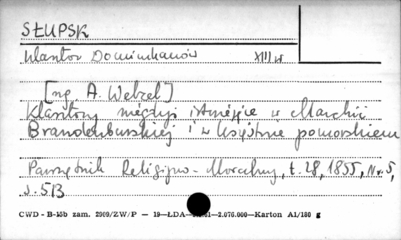 SŁUPSK
klasztor Dominikanów XIII w
[wg A. Wetzel]
Klasztory męskie istniejące w Marchii
Brandenburskiej i w księstwie pomorskiem
Pamiętnik Religijno-Moralny, t. 28, 1855, Nr. 5,
s. 513
CWD - B-15b zam. 2909/ZW/P — 19—ŁDA— —2.076.000—Karton A1/180 g